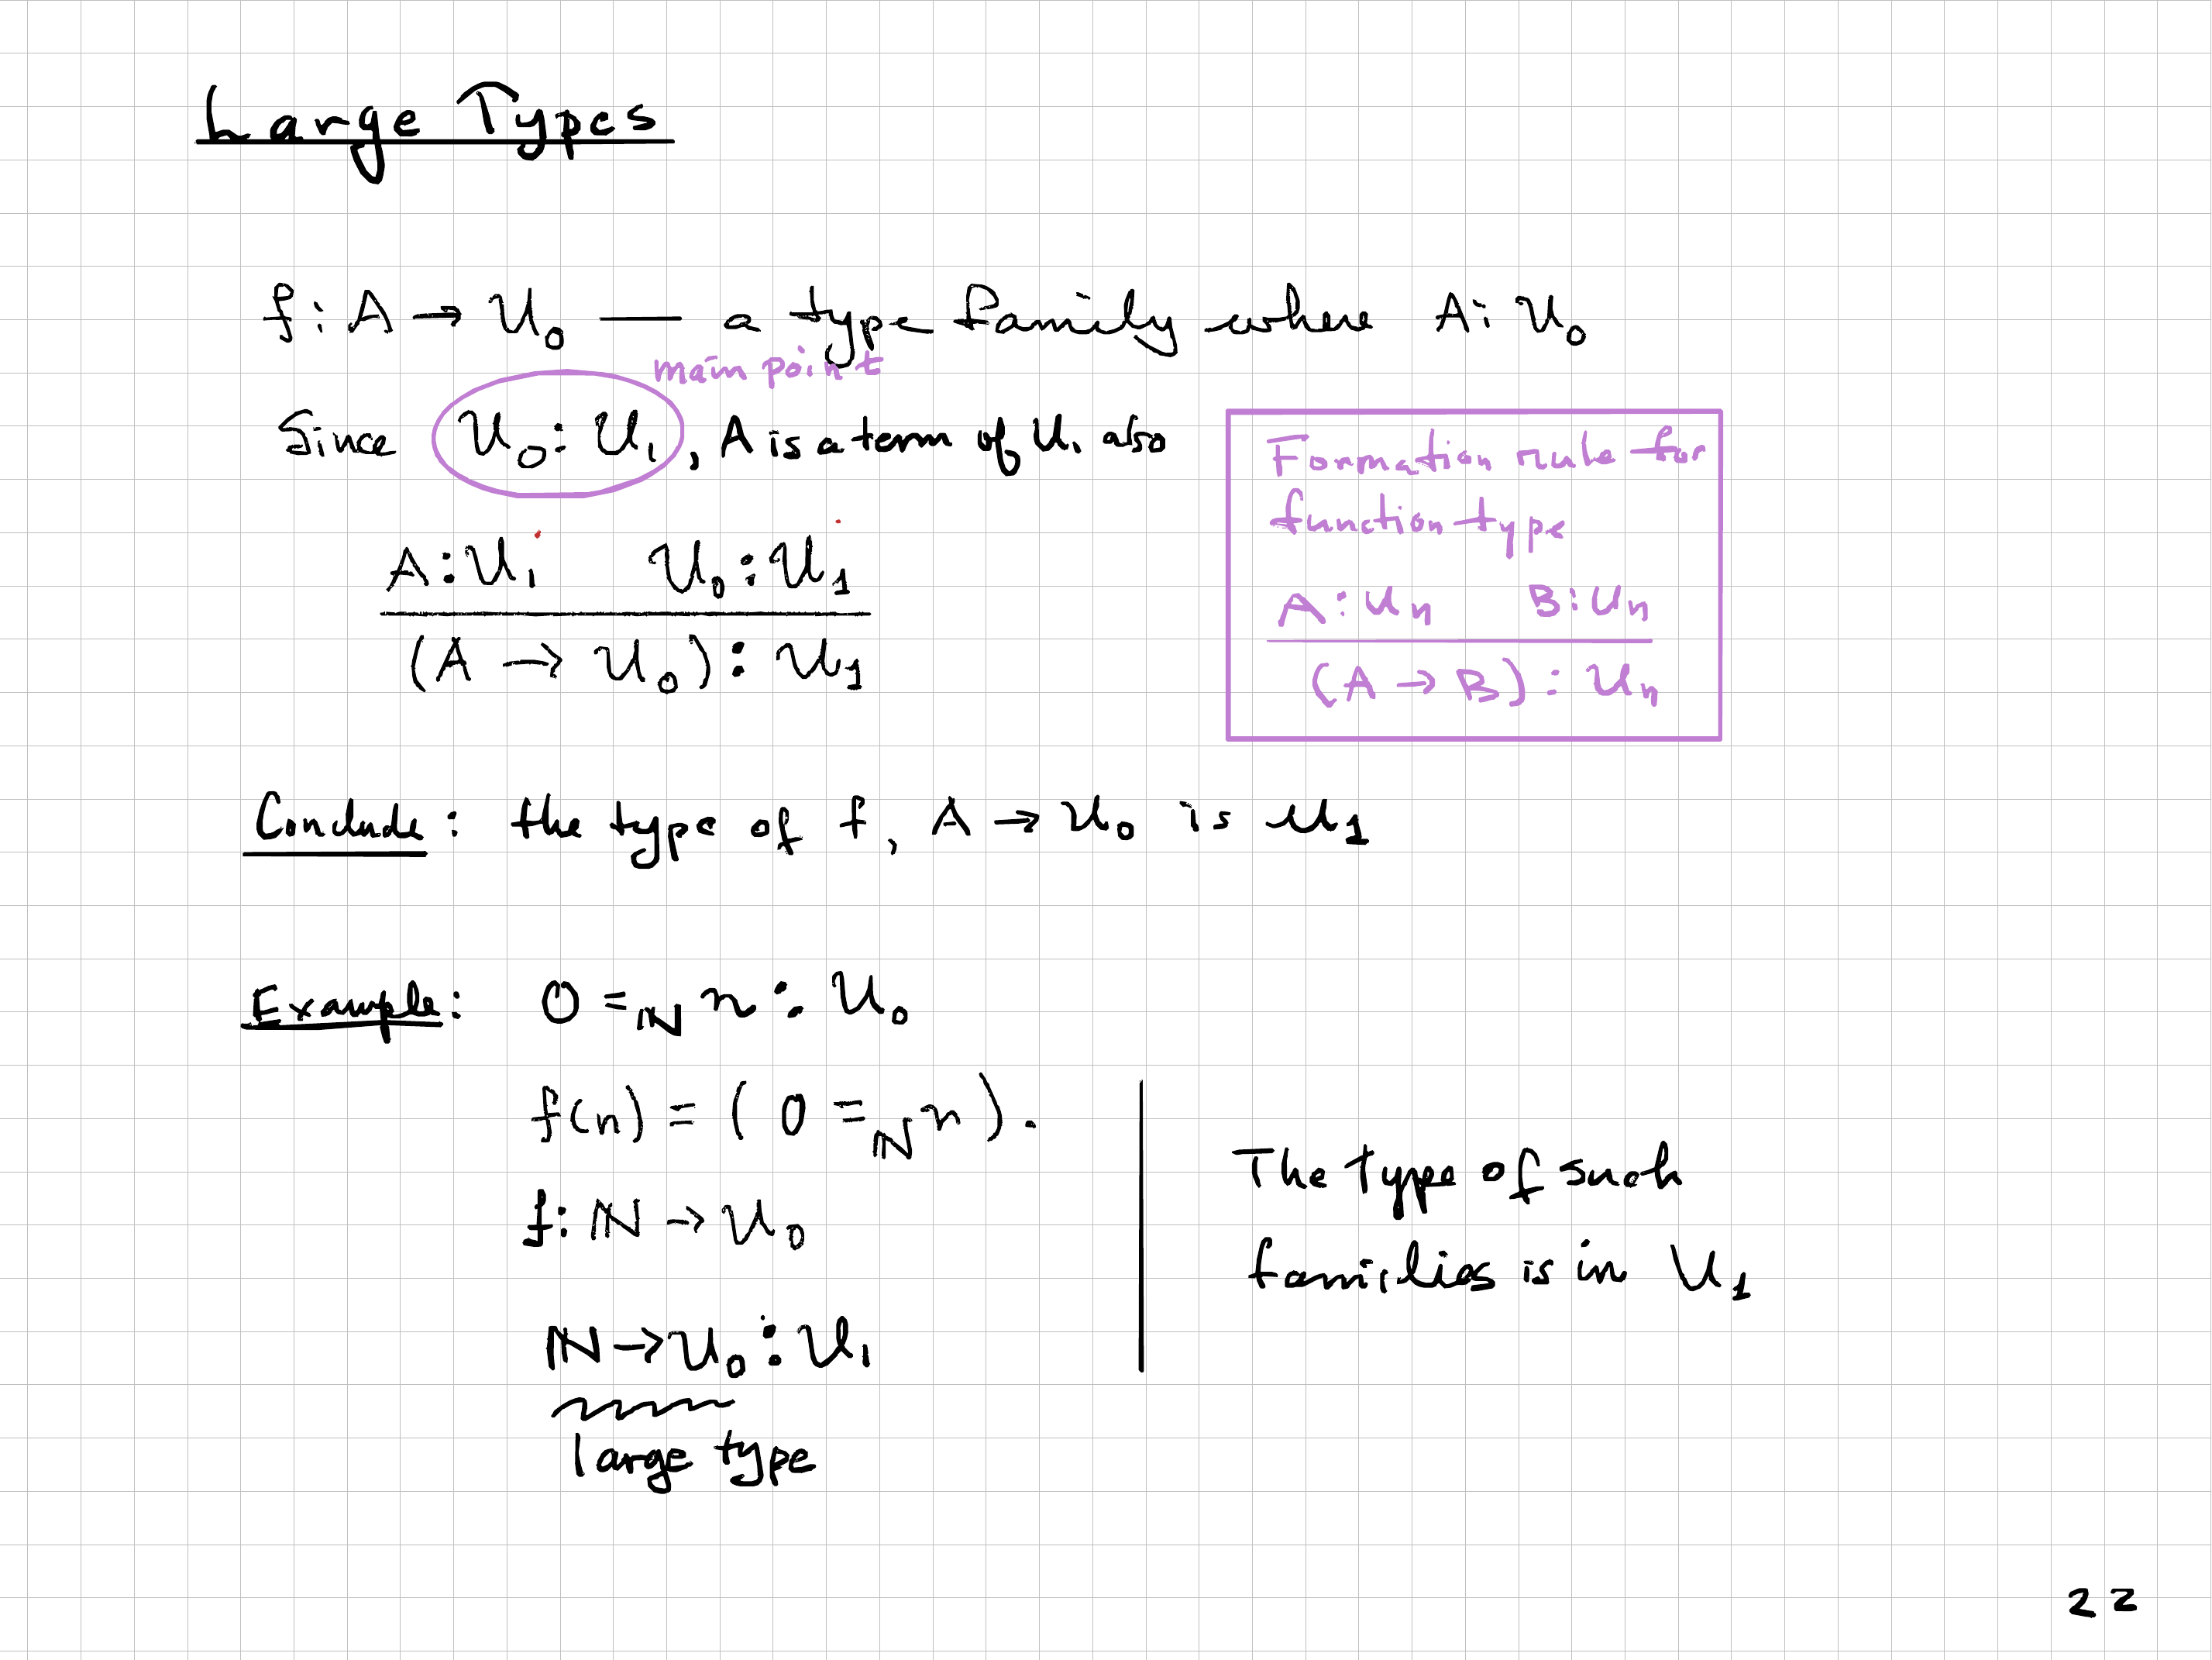 Large Types
f : A → U₀ — a type family where A : U₀
main point
Since U₀ : U₁, A is a term of U₁ also
A : U₁ U₀ : U₁
(A → U₀) : U₁
Formation rule for
function type
A : Uₙ B : Uₙ
(A → B) : Uₙ
Conclude : the type of f, A → U₀ is U₁
Example : 0 =ℕ n : U₀
f(n) = ( 0 =ℕ n ).
f : ℕ → U₀
ℕ → U₀ : U₁
large type
The type of such
families is in U₁
22